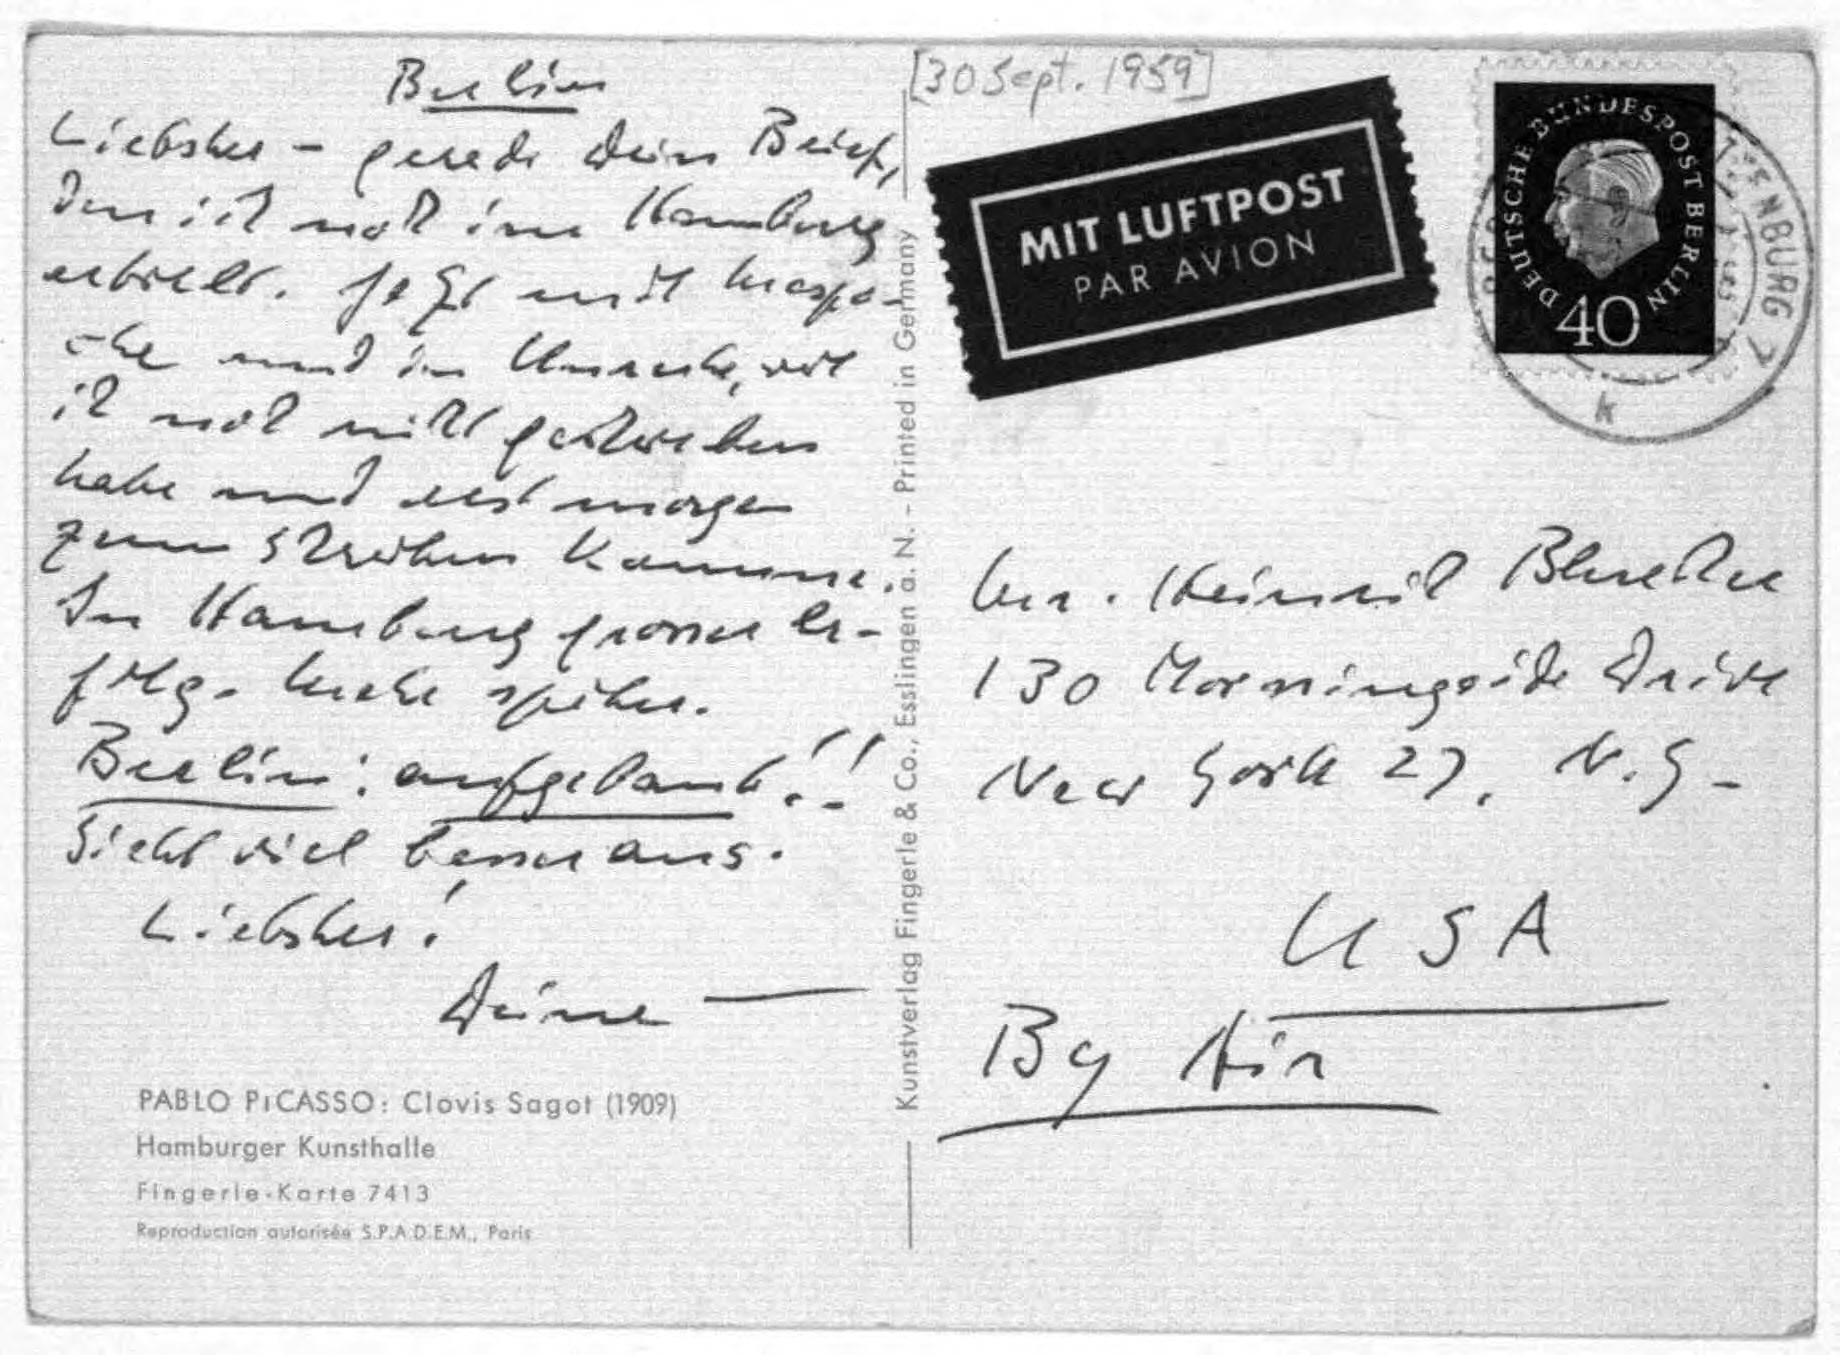 Berlin
Liebster – gerade Dein Brief,
den ich noch in Hamburg
erhielt. Jetzt nur
und in Unruhe, weil
ich noch nicht geschrieben
habe und erst morgen
zum Schreiben komme.
In Hamburg grosser Er-
folg. Mehr später.
Berlin: aufgebaut!!
Sieht viel besser aus.
Liebster!
Deine —
PABLO PICASSO: Clovis Sagot (1909)
Hamburger Kunsthalle
Fingerle-Karte 7413
Reproduction autorisée S.P.A.D.E.M., Paris
Kunstverlag Fingerle & Co., Esslingen a. N. - Printed in Germany
[30 Sept. 1959]
MIT LUFTPOST
PAR AVION
DEUTSCHE BUNDESPOST BERLIN
40
k
Mr. Heinrich Bluecher
130 Morningside Drive
New York 27, N.Y-
USA
By Air